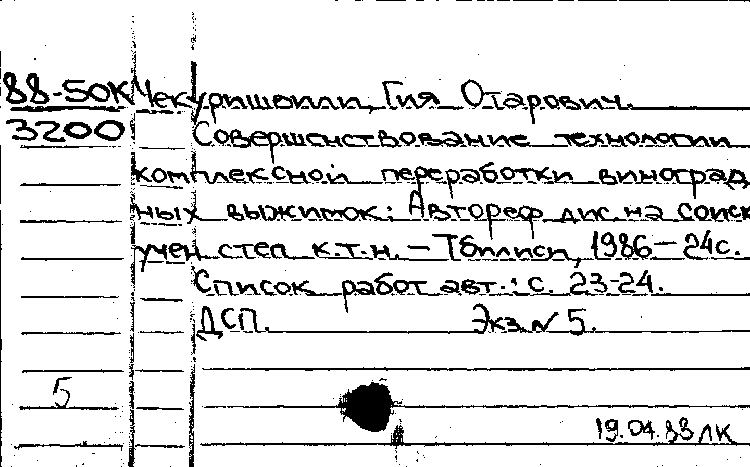 88-50К Чекуришвили, Гия Отарович.
3200 Совершенствование технологии
комплексной переработки виноград
ных выжимок: Автореф. дис. на соиск
учен. степ. к.т.н. – Тбилиси, 1986 – 24с.
Список работ авт.: с. 23-24.
ДСП. Экз. № 5.
5
19.04.88 ЛК